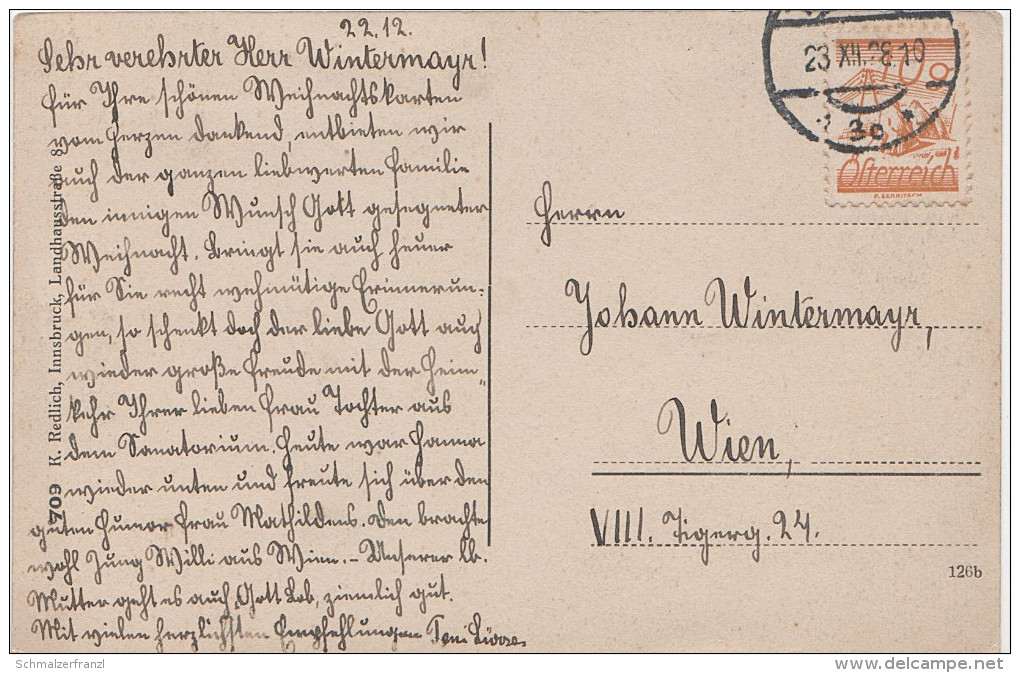 22.12.
Sehr verehrter Herr Wintermayr!
für Ihre schönen Weihnachtskarten
vom Herzen dankend, entbieten wir
auch der ganzen liebwerten Familie
den innigen Wunsch Gott gesegneter
Weihnacht. Bringt sie auch heuer
für Sie recht wehmütige Erinnerun-
gen, so schenkt doch der liebe Gott auch
wieder große Freude mit der Heim-
kehr Ihrer lieben Frau Tochter aus
dem Sanatorium. Heute war Hanna
wieder unten und freute sich über den
guten Humor Frau Mathildens. Den brachte
wohl Jung Willi aus Wien. – Unserer lb.
Mutter geht es auch, Gott Lob, ziemlich gut.
Mit vielen herzlichsten Empfehlungen Toni
709 K. Redlich, Innsbruck, Landhausstraße 8
23 XII.28.10
3c
Österreich
Herrn
Johann Wintermayr,
Wien,
VIII. Tigerg. 24.
126b
Schmalzerfranzl
delcampe.net